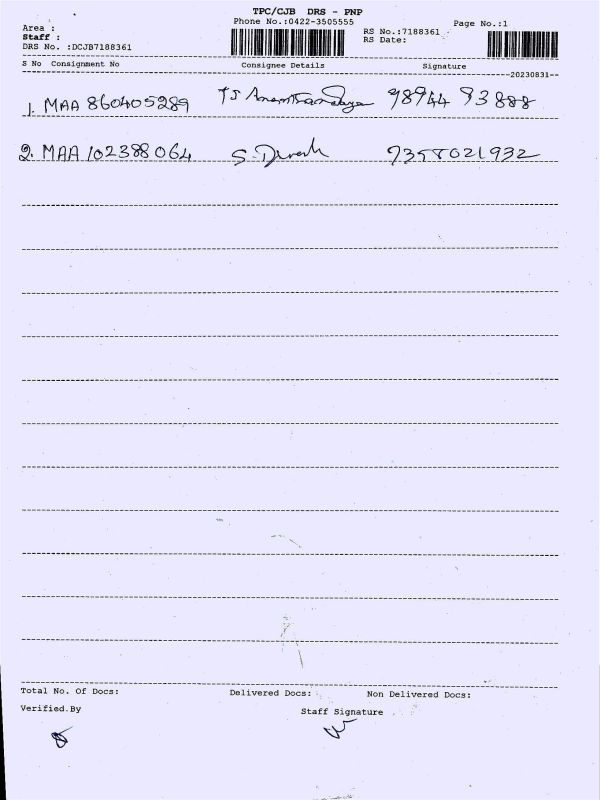 TPC/CJB DRS - PNP
Phone No.:0422-3505555
Page No.:1
Area :
Staff :
DRS No. :DCJB7188361
RS No.:7188361
RS Date:
S No Consignment No Consignee Details Signature
20230831
1. MAA 860405289 TS 98944 93888
2. MAA 102388064 S. Dinesh 9358021932
Total No. Of Docs: Delivered Docs: Non Delivered Docs:
Verified.By Staff Signature